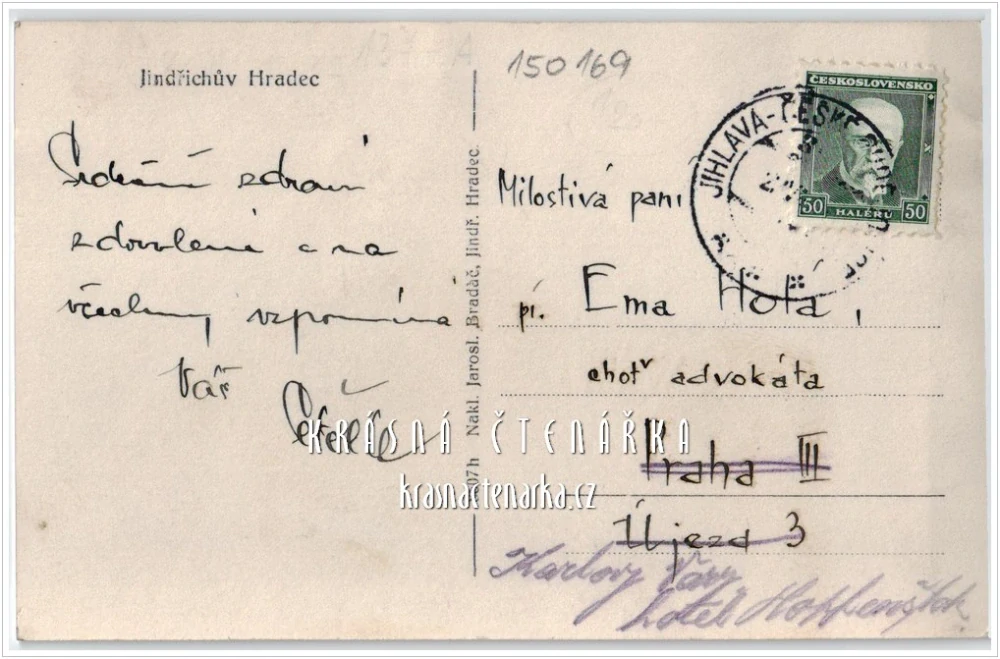 Jindřichův Hradec
Srdečně zdraví
z dovolené a na
všechny vzpomíná
Váš
07h Nakl. Jarosl. Bradáč, Jindř. Hradec.
150169
ČESKOSLOVENSKO
50 HALÉŘŮ 50
JIHLAVA-ČESKÉ
Milostivá paní
pí. Ema Hofá,
choť advokáta
Praha III
Újezd 3
Karlovy Vary
hotel Hopfenštok
KRÁSNÁ ČTENÁŘKA
krasnactenarka.cz